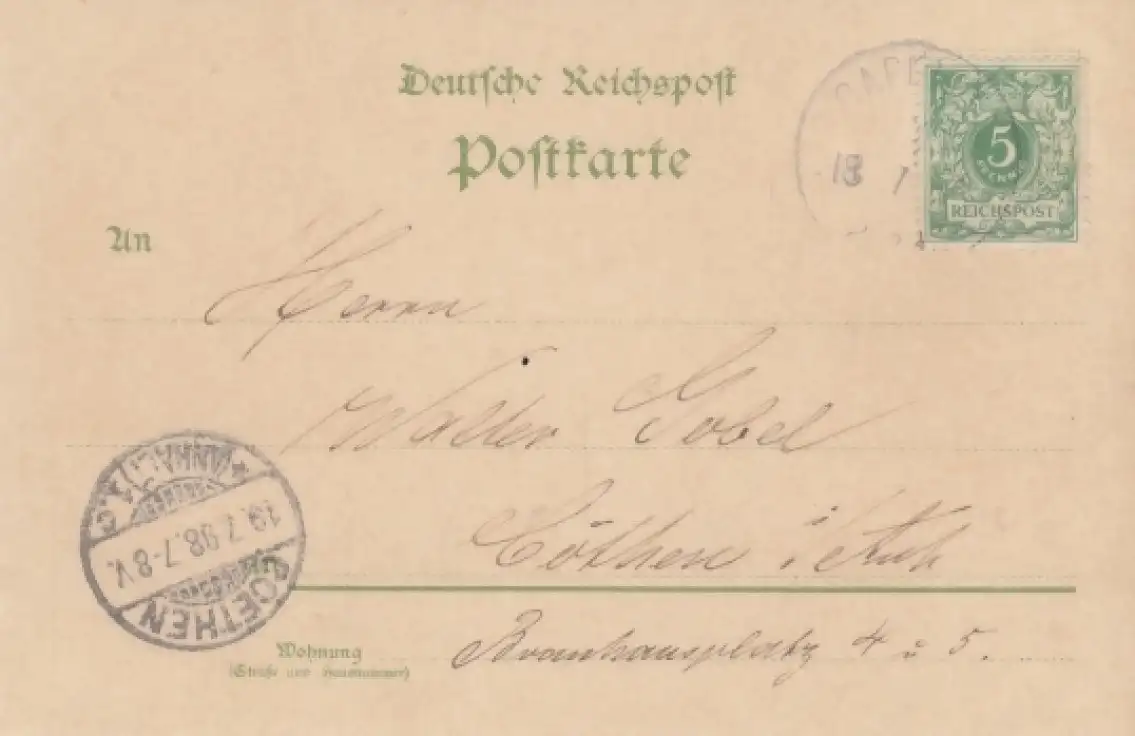 Deutsche Reichspost
Postkarte
5
PFENNIG
REICHSPOST
18 7
An
Herrn
Walter Gobel
Cöthen i Anh
COETHEN
* (ANHALT) 1 c
19.7.98.7-8 V.
Wohnung
(Straße und Hausnummer)
Brauhausplatz 4 u 5.